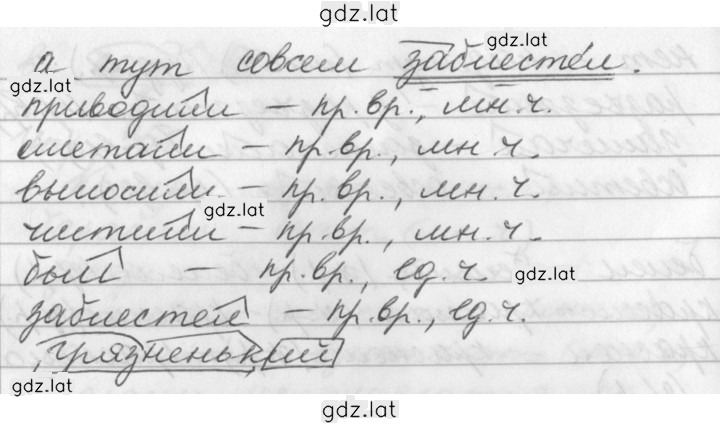 gdz.lat
а тут совсем заблестел.
gdz.lat
gdz.lat
приводили – пр.вр., мн.ч.
сметали – пр.вр., мн.ч.
выносили – пр.вр., мн.ч.
gdz.lat
чистили – пр.вр., мн.ч.
был – пр.вр., ед.ч.
gdz.lat
заблестел – пр.вр., ед.ч.
грязненький
gdz.lat
gdz.lat